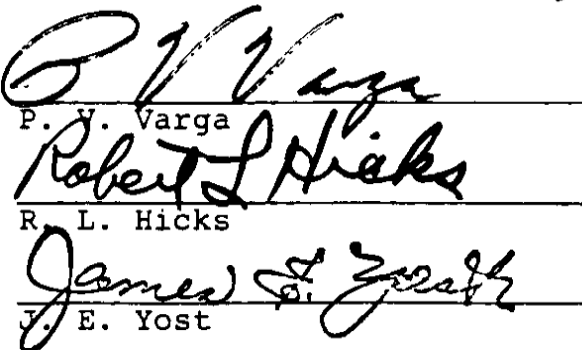 P V Varga
P. V. Varga
Robert L Hicks
R. L. Hicks
James E. Yost
J. E. Yost